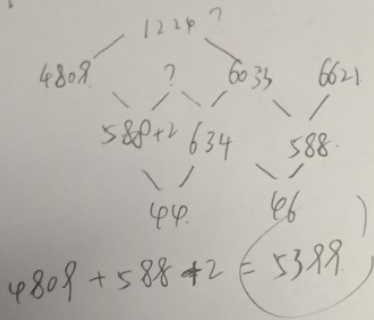 1224?
4809 ? 6033 6621
588+2 634 588
44 46
4809 + 588 + 2 = 5399